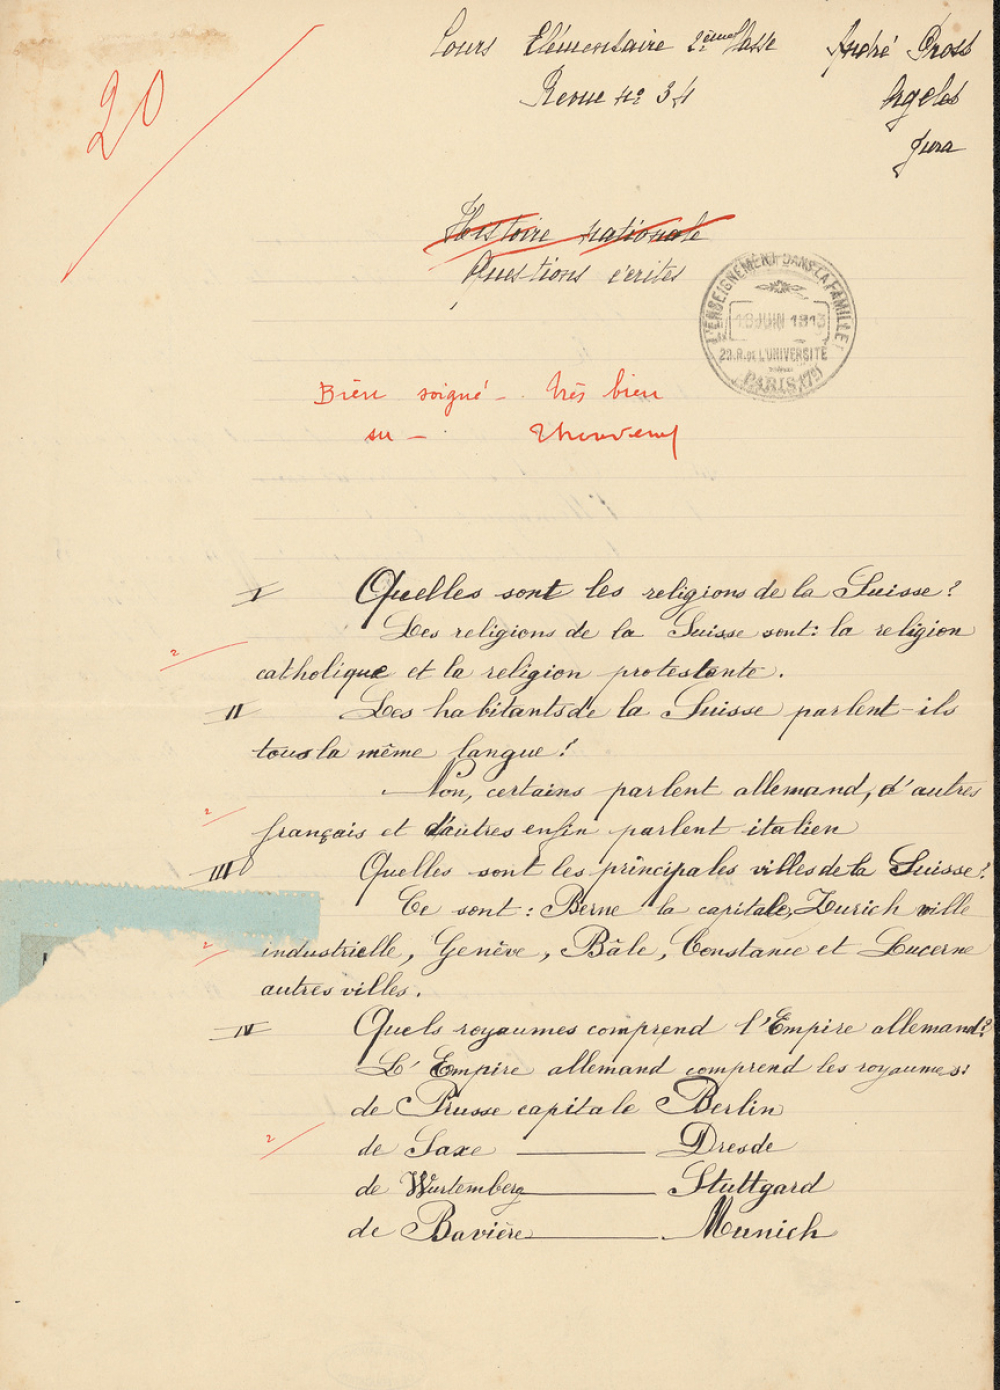 20
Cours Elémentaire 2ème classe André Pross
Revue nº 34 Argelès
Jura
Histoire nationale
Questions écrites
L'ENSEIGNEMENT DANS LA FAMILLE
18 JUIN 1913
29.R.DE L'UNIVERSITÉ
PARIS (7e)
Bien soigné - très bien
su -
I Quelles sont les religions de la Suisse?
Les religions de la Suisse sont: la religion
2 catholique et la religion protestante.
II Les habitants de la Suisse parlent-ils
tous la même langue?
Non, certains parlent allemand, d'autres
2 français et d'autres enfin parlent italien
III Quelles sont les principales villes de la Suisse?
Ce sont: Berne la capitale, Zurich ville
2 industrielle, Genève, Bâle, Constance et Lucerne
autres villes.
IV Quels royaumes comprend l'Empire allemand?
L'Empire allemand comprend les royaumes:
de Prusse capitale Berlin
2 de Saxe ——— Dresde
de Wurtemberg ——— Stuttgard
de Bavière ——— Munich